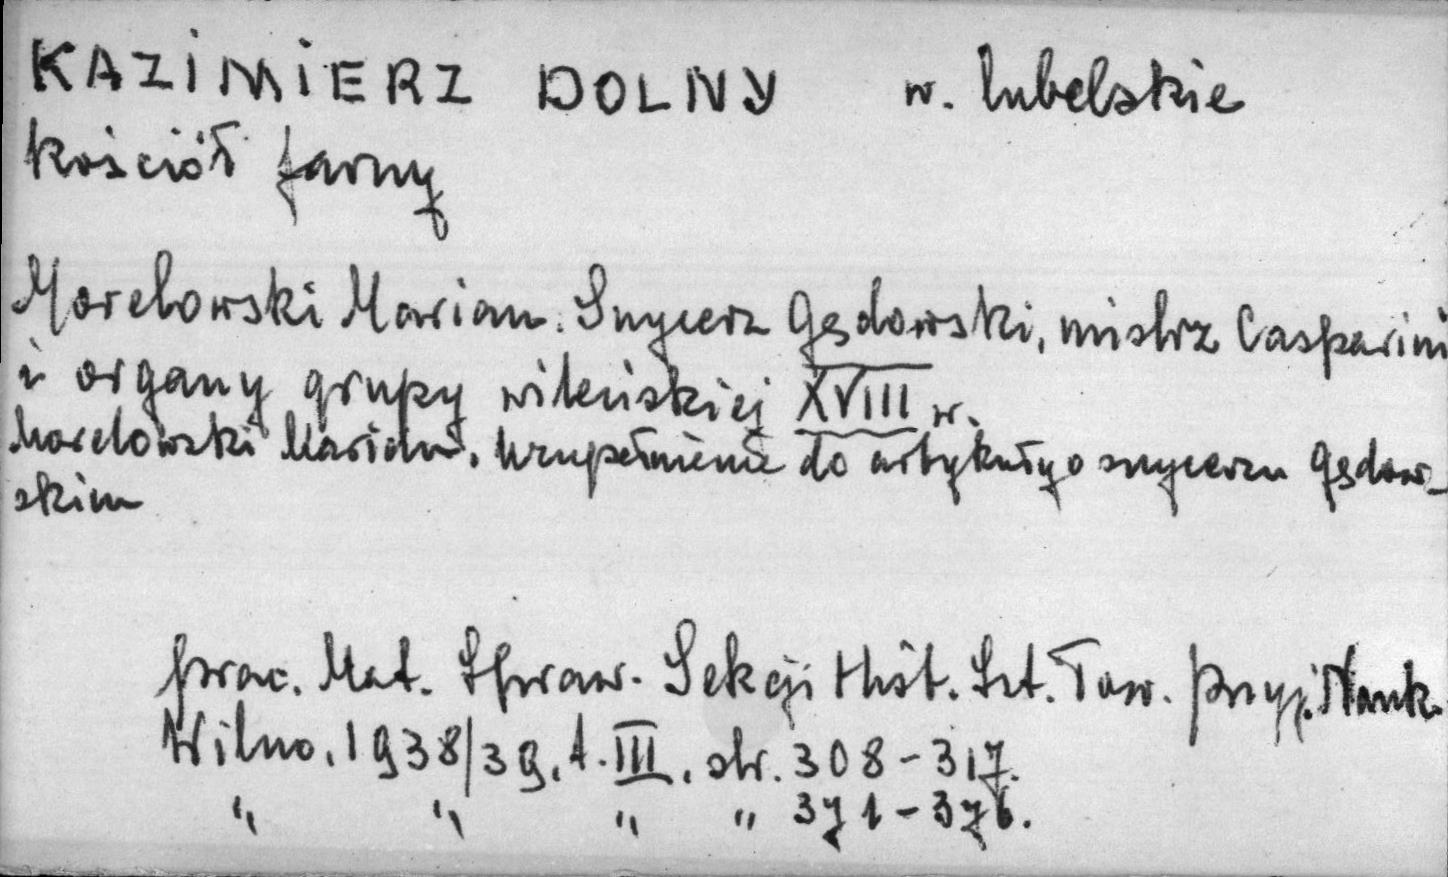 KAZIMIERZ DOLNY w. lubelskie
kościół farny
Morelowski Marian. Snycerz Gędowski, mistrz Casparini
i organy grupy wileńskiej XVIII w.
Morelowski Marian. Uzupełnienie do artykułu o snycerzu Gędow-
skim
Prac. Mat. Spraw. Sekcji Hist. Szt. Tow. Przyj. Nauk.
Wilno, 1938/39, t. III, str. 308-317.
" " " " 371-376.